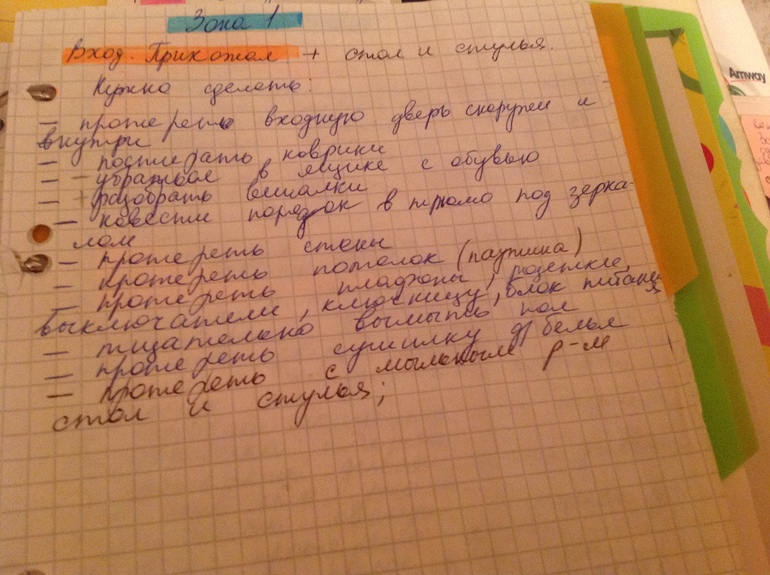 Зона 1
Вход. Прихожая + стол и стулья.
Нужно сделать:
— протереть входную дверь снаружи и
внутри
— постирать коврики
— убраться в ящике с обувью
— + разобрать вешалки
— навести порядок в трюмо под зерка-
лом
— протереть стены
— протереть потолок (паутина)
— протереть плафоны, розетки,
выключатели, ключницу, блок питания
— тщательно вымыть пол
— протереть сушилку д/белья
— протереть с мыльным р-м
стол и стулья;
Amway